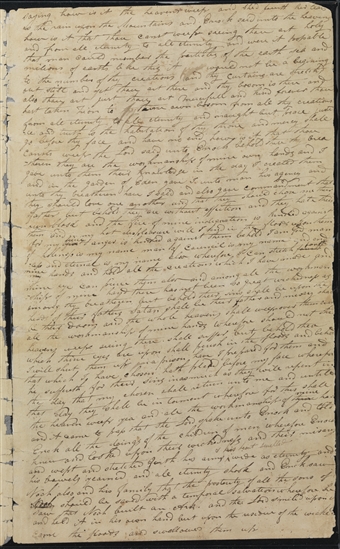 saying how is it the heavens weep and shed forth her tears
as the rain upon the Mountains and Enoch said unto the heavens
how is it that thou canst weep seeing thou art holy
and from all eternity to all eternity and were it possable
that man could number the particles of the earth and
millions of earths like this it would not be a beginning
to the number of thy creations and thy curtains are stretched
out still and yet thou art there and thy bosom is there and
also thou art Just thou art merciful and kind forever thou
hast taken Zion to thine own bosom from all thy creations
from all eternity to all eternity and naught but peace
and truth is the habitation of thy throne and mercy shall
go before thy face and have no end how is it that thou
canst weep the Lord said unto Enoch behold these thy brethren
they are the workmanship of mine own hands and I
gave unto them their knowledge in the day I created them
and in the garden of Eden gave I unto man his agency and
unto thy brethren have I said and also gave commandment that
they should love one another and that they should choose me their
father but behold they are without affection and they hate their
own blood and the fire of mine indignation is kindled against
them and in my hot displeasure will I send in the floods upon them
for my fierce anger is kindled against them behold I am God man
of holiness is my name man of Council is my name and
endless and eternal is my name also wherefore I can stretch forth
mine hands and hold all the creations which I have made and
mine eye can pierce them also and among all the workmanship
of mine hands there has not been so great wickedness as
among thy brethren but behold their sins shall be upon the
heads of their fathers Satan shall be their father and misery shall
be their doom and the whole heavens shall weep over them even
all the workmanship of mine hands wherefore should not the
heavens weep seeing these shall suffer but behold these
which thine eyes are upon shall perish in the floods and behold
I will shut them up a prison have I prepared for them and
that which I have chosen hath plead before my face wherefore
he suffereth for their sins inasmuch as they will repent in
the day that my chosen shall return unto me and until
that day they shall be in torment wherefore for this shall
the heavens weep yea and all the workmanship of mine hands
and it came to pass that the Lord spake unto Enoch and told
Enoch all the doings of the children of men wherefore Enoch
knew and looked upon their wickedness and their misery
and wept and stretched forth his arms
his bowels yearned and all eternity shook and Enoch saw
Noah also and his family that the posterity of all the sons of
Noah should be saved with a temporal salvation wherefore he
saw that Noah built an Ark and the Lord smiled upon it
and held it in his own hand but upon the residue of the wicked
came the floods and swallowed them up